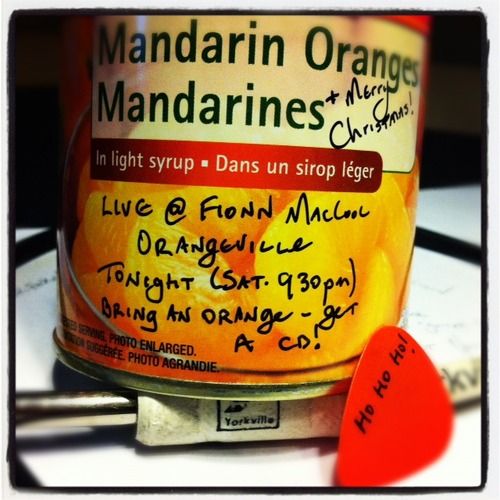 Mandarin Oranges
Mandarines
+ Merry
Christmas!
In light syrup ▪ Dans un sirop léger
LIVE @ FIONN MacCOOL
ORANGEVILLE
TONIGHT (SAT. 930pm)
BRING AN ORANGE - get
A CD!
SERVING. PHOTO ENLARGED.
SUGGÉRÉE. PHOTO AGRANDIE.
Yorkville
HO HO HO!